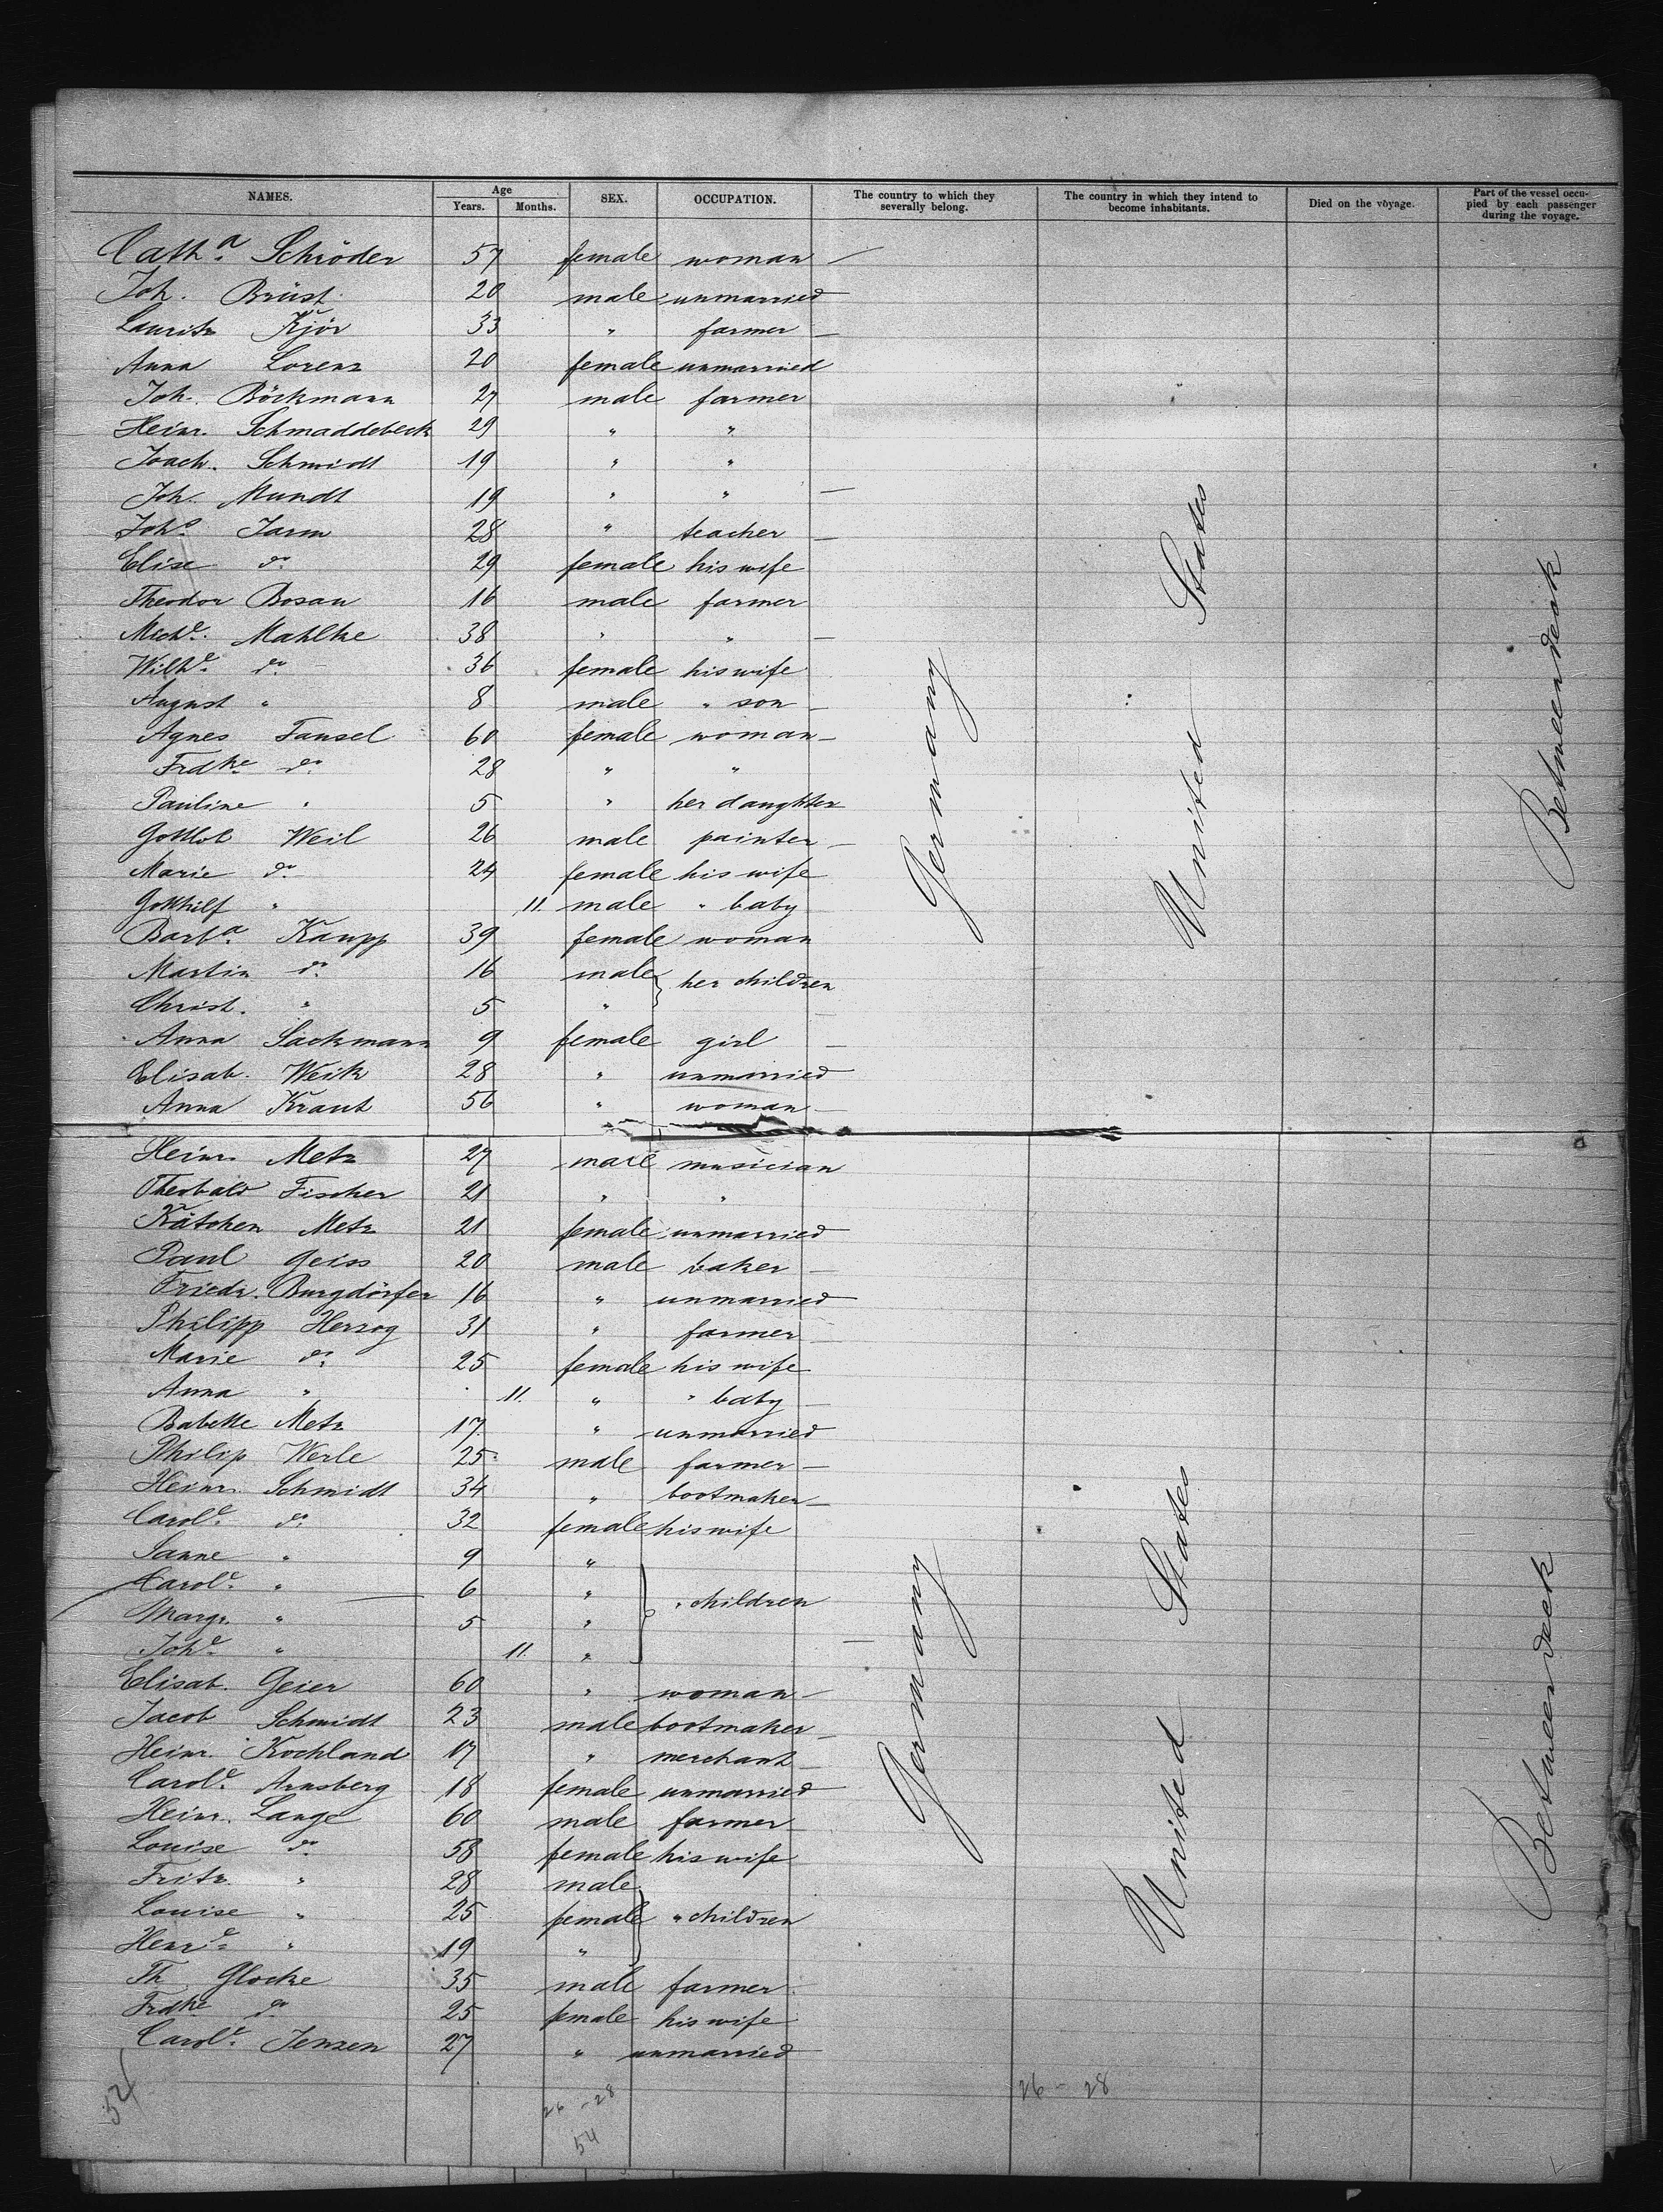 NAMES. Age Years. Months. SEX. OCCUPATION. The country to which they severally belong. The country in which they intend to become inhabitants. Died on the voyage. Part of the vessel occupied by each passenger during the voyage.
Cath.a Schröder 57 female woman —
Joh. Brüst 20 male unmarried
Lauritz Kjör 33 " farmer —
Anna Lorenz 20 female unmarried
Joh. Böckmann 27 male farmer
Heinr. Schmaddebeck 29 " "
Joach. Schmidt 19 " "
Joh. Mundt 19 " " —
Joh.s Jarm 28 " teacher —
Elise do. 29 female his wife
Theodor Bosau 16 male farmer
Mich.l Mahlke 38 " " —
Wilh.e do. 36 female his wife
August " 8 male " son —
Agnes Fausel 60 female woman —
Frdke do. 28 " "
Pauline " 5 " her daughter
Gottlob Weil 26 male painter —
Marie do. 24 female his wife
Gotthilf " 11. male " baby
Barb.a Kaupp 39 female woman
Martin do. 16 male } her children
Christ. " 5 "
Anna Sackmann 9 female girl —
Elisab. Weik 28 " unmarried
Anna Kraut 56 " woman —
Germany
United States
Betweendeck
Heinr. Metz 27 male musician
Theobald Fischer 21 " "
Kätchen Metz 21 female unmarried
Paul Geiss 20 male baker —
Friedr. Burgdörfer 16 " unmarried
Philipp Herzog 31 " farmer —
Marie do. 25 female his wife
Anna " 11. " " baby —
Babette Metz 17. " unmarried
Philip Werle 25 male farmer —
Heinr. Schmidt 34 " bootmaker —
Carol.e do. 32 female his wife
Sanne " 9 "
Carol.e " 6 " } " children
Margr. " 5 "
Joh.e " 11. " —
Elisab. Geier 60 " woman —
Jacob Schmidt 23 male bootmaker —
Heinr. Kochland 17 " merchant —
Carol.e Arnsberg 18 female unmarried —
Heinr. Lange 60 male farmer —
Louise do. 58 female his wife
Fritz " 28 male
Louise " 25 female } " children
Henr.e " 19 "
Th. Glocke 35 male farmer
Frdke do. 25 female his wife
Carol.e Jensen 27 " unmarried
Germany
United States
Betweendeck
54
26 - 28
54
26 - 28